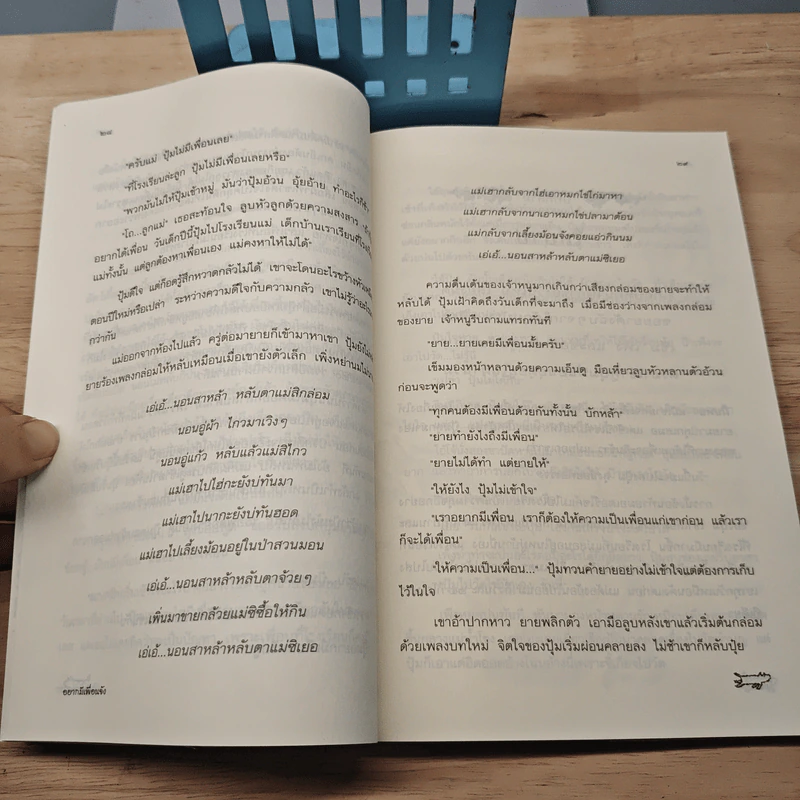 ๒๘
"ครับแม่ ปุ้มไม่มีเพื่อนเลย"
"ที่โรงเรียนล่ะลูก ปุ้มไม่มีเพื่อนเลยหรือ"
"พวกมันไม่ให้ปุ้มเข้าหมู่ มันว่าปุ้มอ้วน อุ้ยอ้าย ทำอะไรก็ช้า"
"โถ...ลูกแม่" เธอสะท้อนใจ ลูบหัวลูกด้วยความสงสาร
อยากได้เพื่อน วันเด็กปีนี้ปุ้มไปโรงเรียนแม่ เด็กบ้านเราเรียนที่โรงเรียน
แม่ทั้งนั้น แต่ลูกต้องหาเพื่อนเอง แม่คงหาให้ไม่ได้"
ปุ้มดีใจ แต่ก็อดรู้สึกหวาดกลัวไม่ได้ เขาจะโดนอะไรขว้างหัวเหมือน
ตอนปีใหม่หรือเปล่า ระหว่างความดีใจกับความกลัว เขาไม่รู้ว่า
กว่ากัน
แม่ออกจากห้องไปแล้ว ครู่ต่อมายายก็เข้ามาหาเขา ปุ้มยัง
ยายร้องเพลงกล่อมให้หลับเหมือนเมื่อเขายังตัวเล็ก เพิ่งหย่านม
เอ่เอ้...นอนสาหล้า หลับตาแม่สิกล่อม
นอนอู่ผ้า ไกวมาเวิงๆ
นอนอู่แก้ว หลับแล้วแม่สิไกว
แม่เฮาไปไฮ่กะยังบ่ทันมา
แม่เฮาไปนากะยังบ่ทันฮอด
แม่เฮาไปเลี้ยงม้อนอยู่ในป่าสวนมอน
เอ่เอ้...นอนสาหล้าหลับตาจ้วยๆ
เพิ่นมาขายกล้วยแม่ซิซื้อให้กิน
เอ่เอ้...นอนสาหล้าหลับตาแม่ซิเยอ
อยากมีเพื่อแจ้ง
๒๙
แม่เฮากลับจากไฮ่เอาหมกไข่ไก่มาหา
แม่เฮากลับจากนาเอาหมกไข่ปลามาต้อน
แม่กลับจากเลี้ยงม้อนจังคอยแอ่วกินนม
เอ่เอ้...นอนสาหล้าหลับตาแม่ซิเยอ
ความตื่นเต้นของเจ้าหนูมากเกินกว่าเสียงกล่อมของยายจะทำให้
หลับได้ ปุ้มเฝ้าคิดถึงวันเด็กที่จะมาถึง เมื่อมีช่องว่างจากเพลงกล่อม
ของยาย เจ้าหนูรีบถามแทรกทันที
"ยาย...ยายเคยมีเพื่อนมั้ยครับ"
เข็มมองหน้าหลานด้วยความเอ็นดู มือเหี่ยวลูบหัวหลานตัวอ้วน
ก่อนจะพูดว่า
"ทุกคนต้องมีเพื่อนด้วยกันทั้งนั้น บักหล้า"
"ยายทำยังไงถึงมีเพื่อน"
"ยายไม่ได้ทำ แต่ยายให้"
"ให้ยังไง ปุ้มไม่เข้าใจ"
"เราอยากมีเพื่อน เราก็ต้องให้ความเป็นเพื่อนแก่เขาก่อน แล้วเรา
ก็จะได้เพื่อน"
"ให้ความเป็นเพื่อน..." ปุ้มทวนคำยายอย่างไม่เข้าใจแต่ต้องการเก็บ
ไว้ในใจ
เขาอ้าปากหาว ยายพลิกตัว เอามือลูบหลังเขาแล้วเริ่มต้นกล่อม
ด้วยเพลงบทใหม่ จิตใจของปุ้มเริ่มผ่อนคลายลง ไม่ช้าเขาก็หลับปุ๋ย